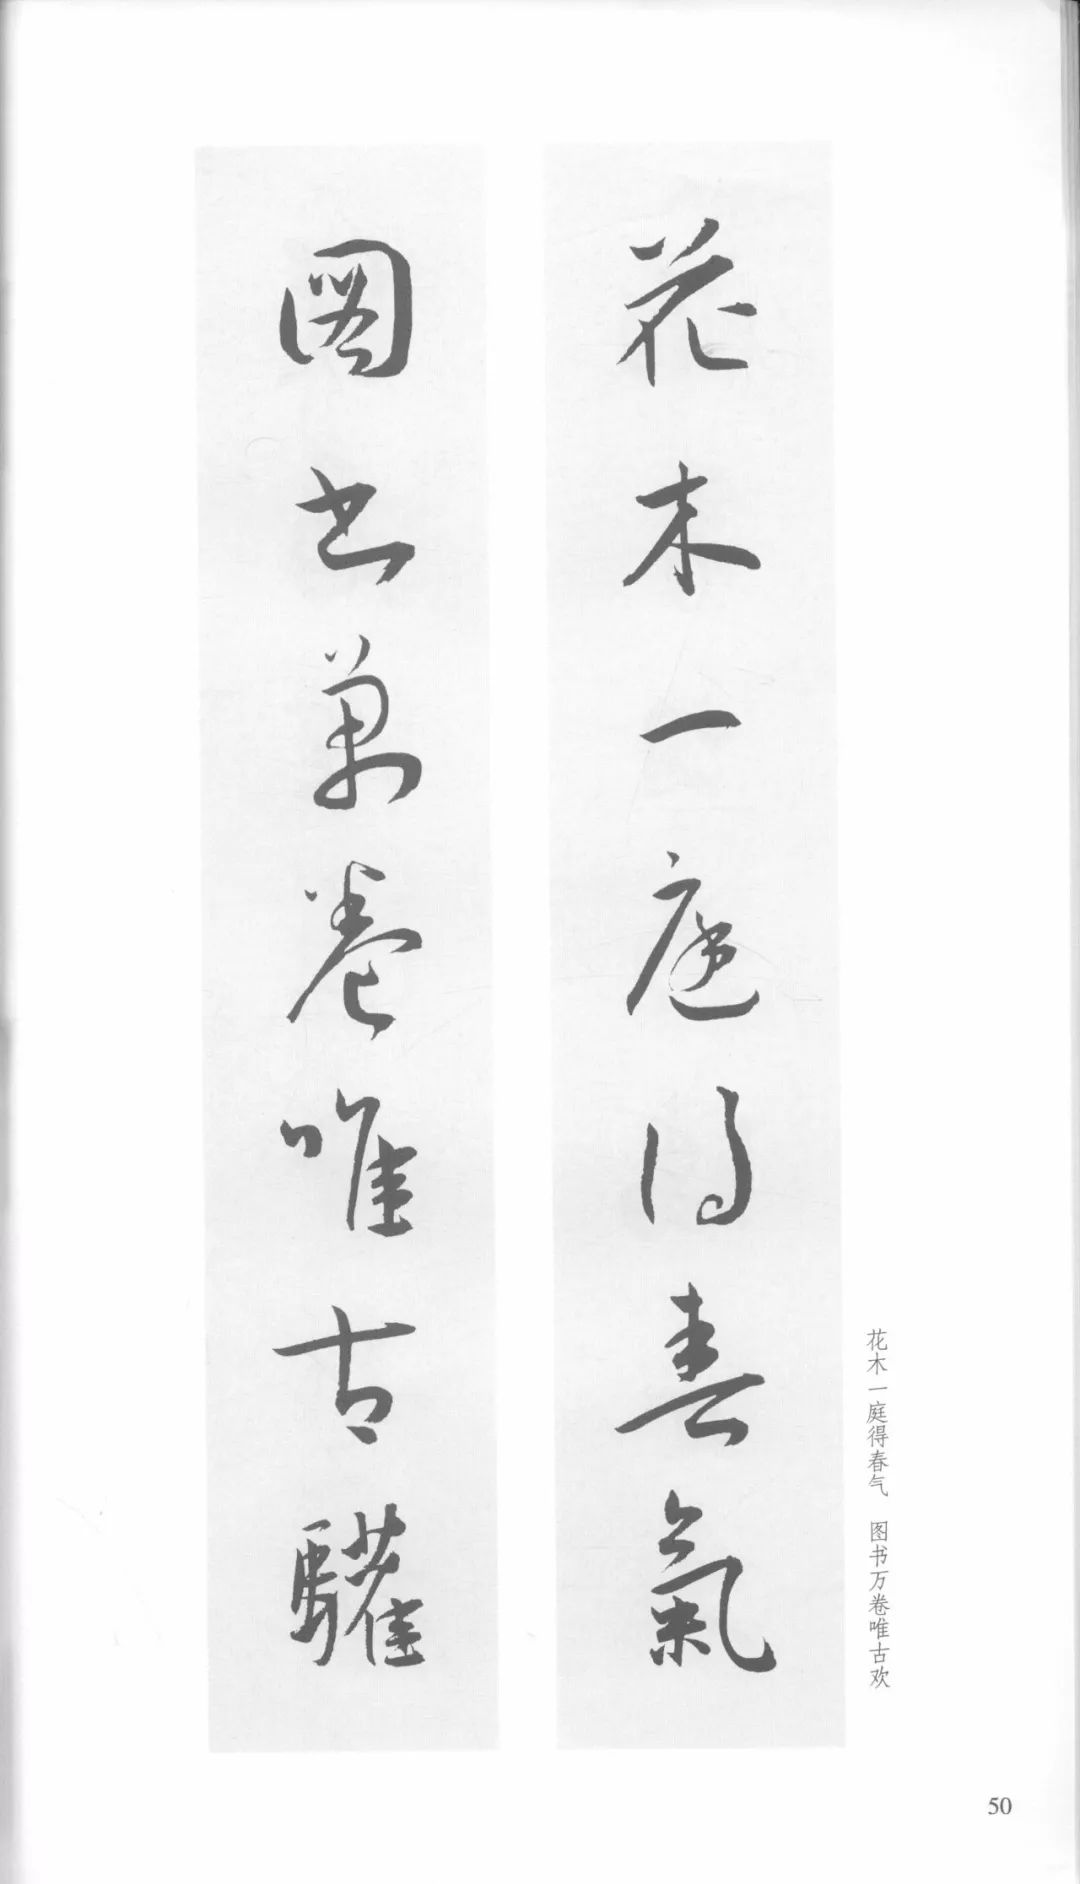 花木一庭得春氣
圖书萬卷唯古驩
花木一庭得春气 图书万卷唯古欢
50